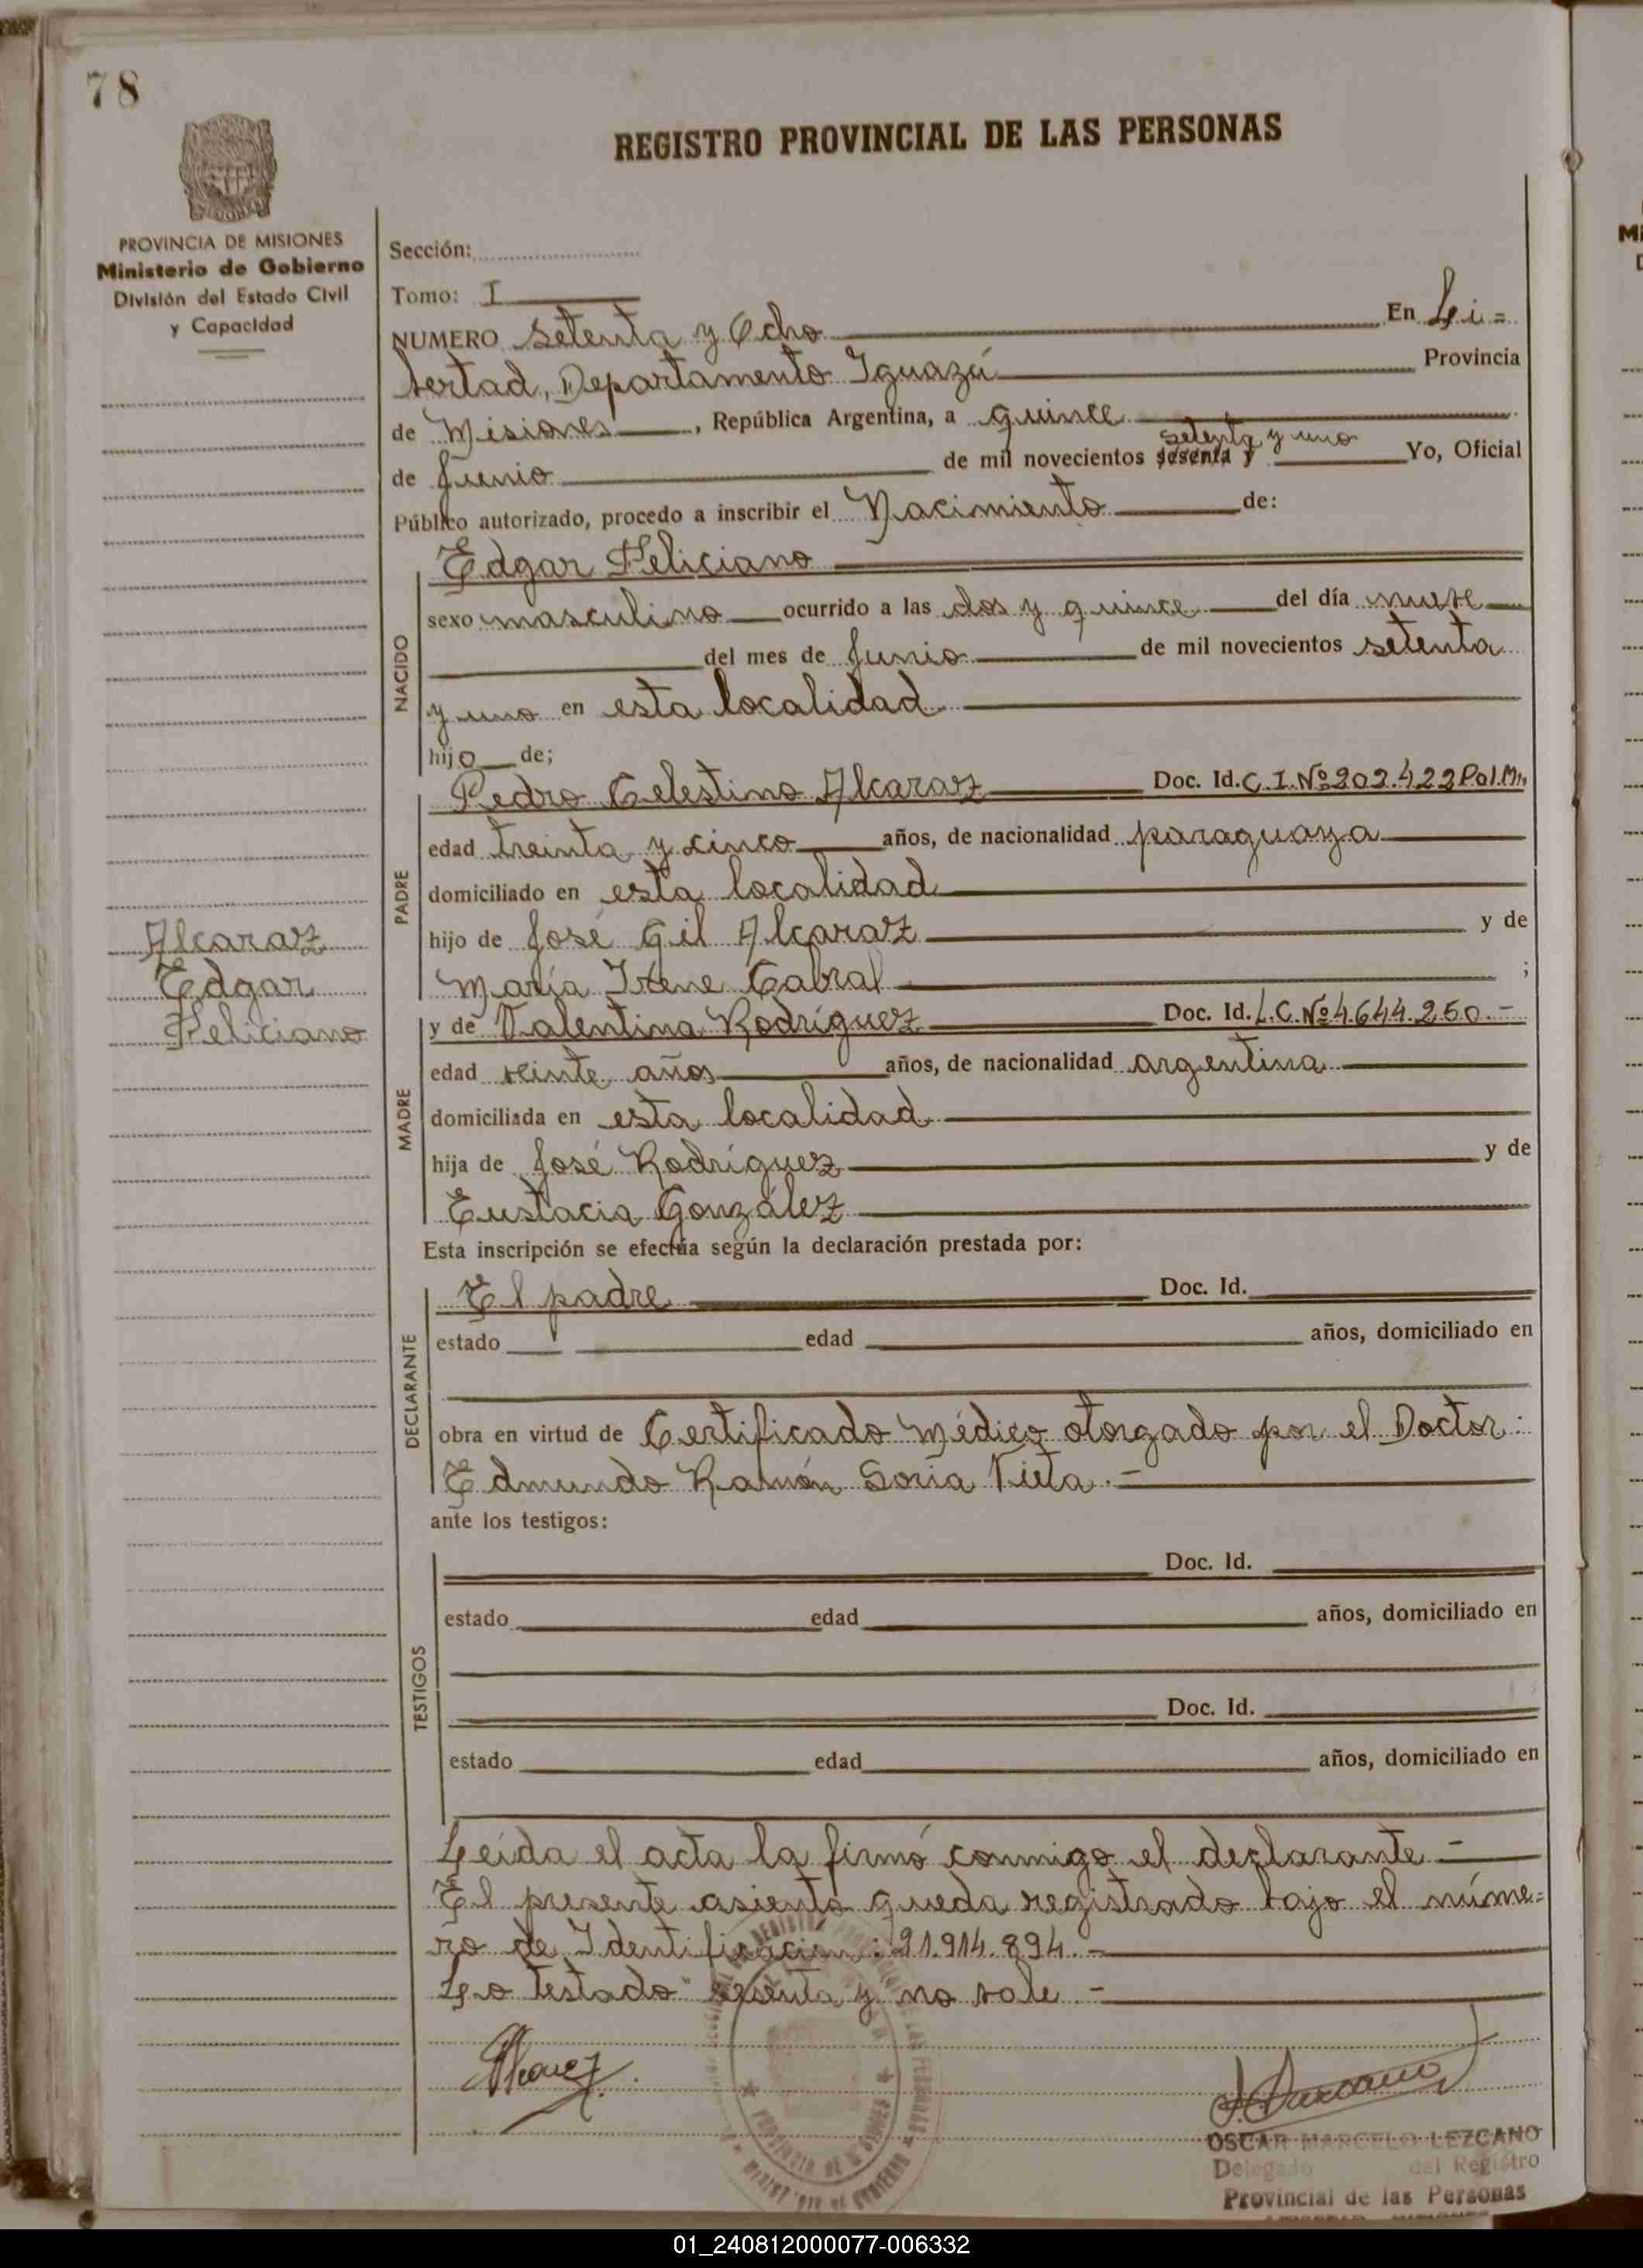 78
REGISTRO PROVINCIAL DE LAS PERSONAS
PROVINCIA DE MISIONES
Ministerio de Gobierno
División del Estado Civil
y Capacidad
Alcaraz
Edgar
Feliciano
Sección:
Tomo: I
NUMERO Setenta y Ocho En Li=
bertad, Departamento Iguazú Provincia
de Misiones, República Argentina, a quince
setenta y uno
de Junio de mil novecientos sesenta y Yo, Oficial
Público autorizado, procedo a inscribir el Nacimiento de:
NACIDO
Edgar Feliciano
sexo masculino ocurrido a las dos y quince del día nueve
del mes de Junio de mil novecientos setenta
y uno en esta localidad
hijo de;
PADRE
Pedro Celestino Alcaraz Doc. Id. C.I.Nº 202.422 Pol.Mns
edad treinta y cinco años, de nacionalidad paraguaya
domiciliado en esta localidad
hijo de José Gil Alcaraz y de
María Irene Cabral ;
MADRE
y de Valentina Rodríguez Doc. Id. L.C.Nº 4.644.250.-
edad veinte años años, de nacionalidad argentina
domiciliada en esta localidad
hija de José Rodríguez y de
Eustacia González
Esta inscripción se efectúa según la declaración prestada por:
DECLARANTE
El padre Doc. Id.
estado edad años, domiciliado en
obra en virtud de Certificado Médico otorgado por el Doctor:
Edmundo Ramón Soria Vieta.-
ante los testigos:
TESTIGOS
Doc. Id.
estado edad años, domiciliado en
Doc. Id.
estado edad años, domiciliado en
Leída el acta la firmó conmigo el declarante -
El presente asiento queda registrado bajo el núme=
ro de Identificación: 21.914.894.-
Lo testado sesenta y no vale -
OSCAR MARCELO LEZCANO
Delegado del Registro
Provincial de las Personas
01_240812000077-006332